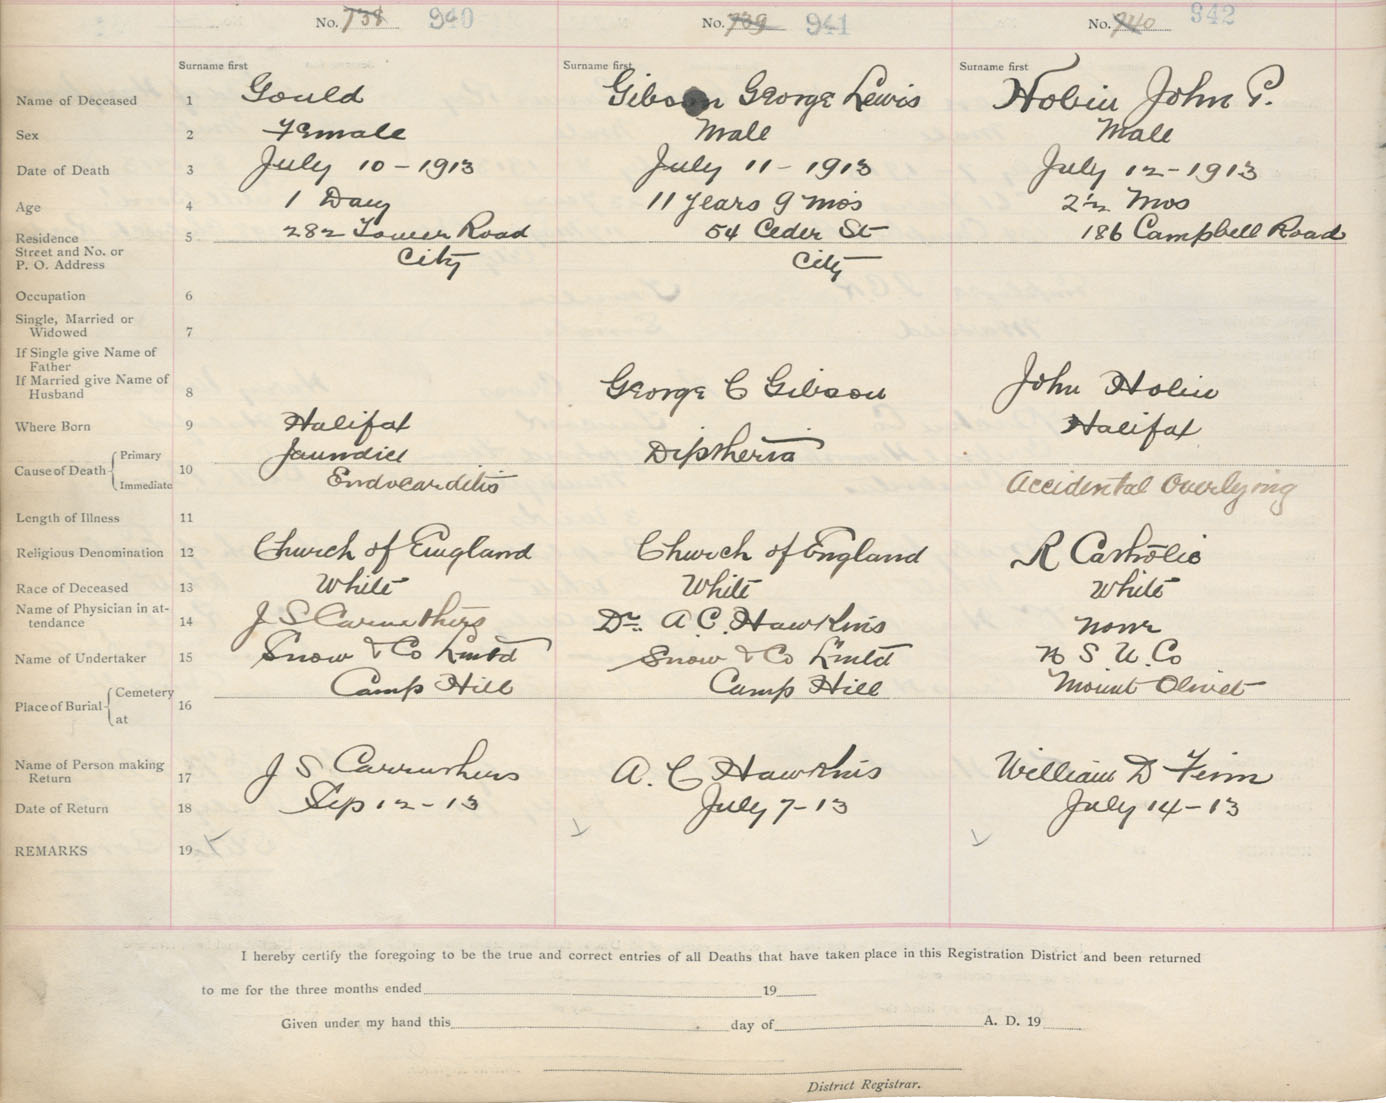 No. 738 940 No. 739 941 No. 740 942
Surname first Surname first Surname first
Name of Deceased 1 Gould Gibson George Lewis Hobin John P.
Sex 2 Female Male Male
Date of Death 3 July 10 - 1913 July 11 - 1913 July 12 - 1913
Age 4 1 Day 11 Years 9 Mos 2½ Mos
Residence 5 282 Tower Road 54 Ceder St 186 Campbell Road
Street and No. or
P. O. Address City City
Occupation 6
Single, Married or
Widowed 7
If Single give Name of
Father
If Married give Name of
Husband 8 George C Gibson John Hobin
Where Born 9 Halifax Halifax
Cause of Death { Primary Jaundice Diptheria
10
Immediate Endocarditis Accidental Overlying
Length of Illness 11
Religious Denomination 12 Church of England Church of England R Catholic
Race of Deceased 13 White White White
Name of Physician in at-
tendance 14 J S Carruthers Dr. A C. Hawkins None
Name of Undertaker 15 Snow & Co Lmtd Snow & Co Lmtd N S U. Co
Place of Burial { Cemetery Camp Hill Camp Hill Mount Olivet
16
at
Name of Person making
Return 17 J S Carruthers A. C Hawkins William D Finn
Date of Return 18 Sep 12 - 13 July 7 - 13 July 14 - 13
REMARKS 19
I hereby certify the foregoing to be the true and correct entries of all Deaths that have taken place in this Registration District and been returned
to me for the three months ended 19
Given under my hand this day of A. D. 19
District Registrar.